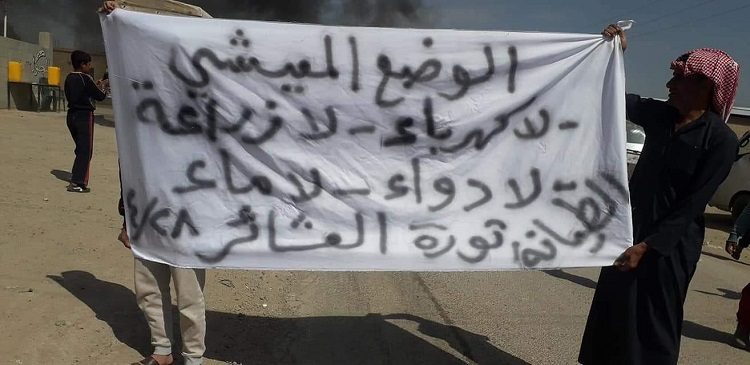 الوضع المعيشي
- لا كهرباء - لا زراعة
- لا دواء - لا ماء
ثورة العشائر ٤/٢٨